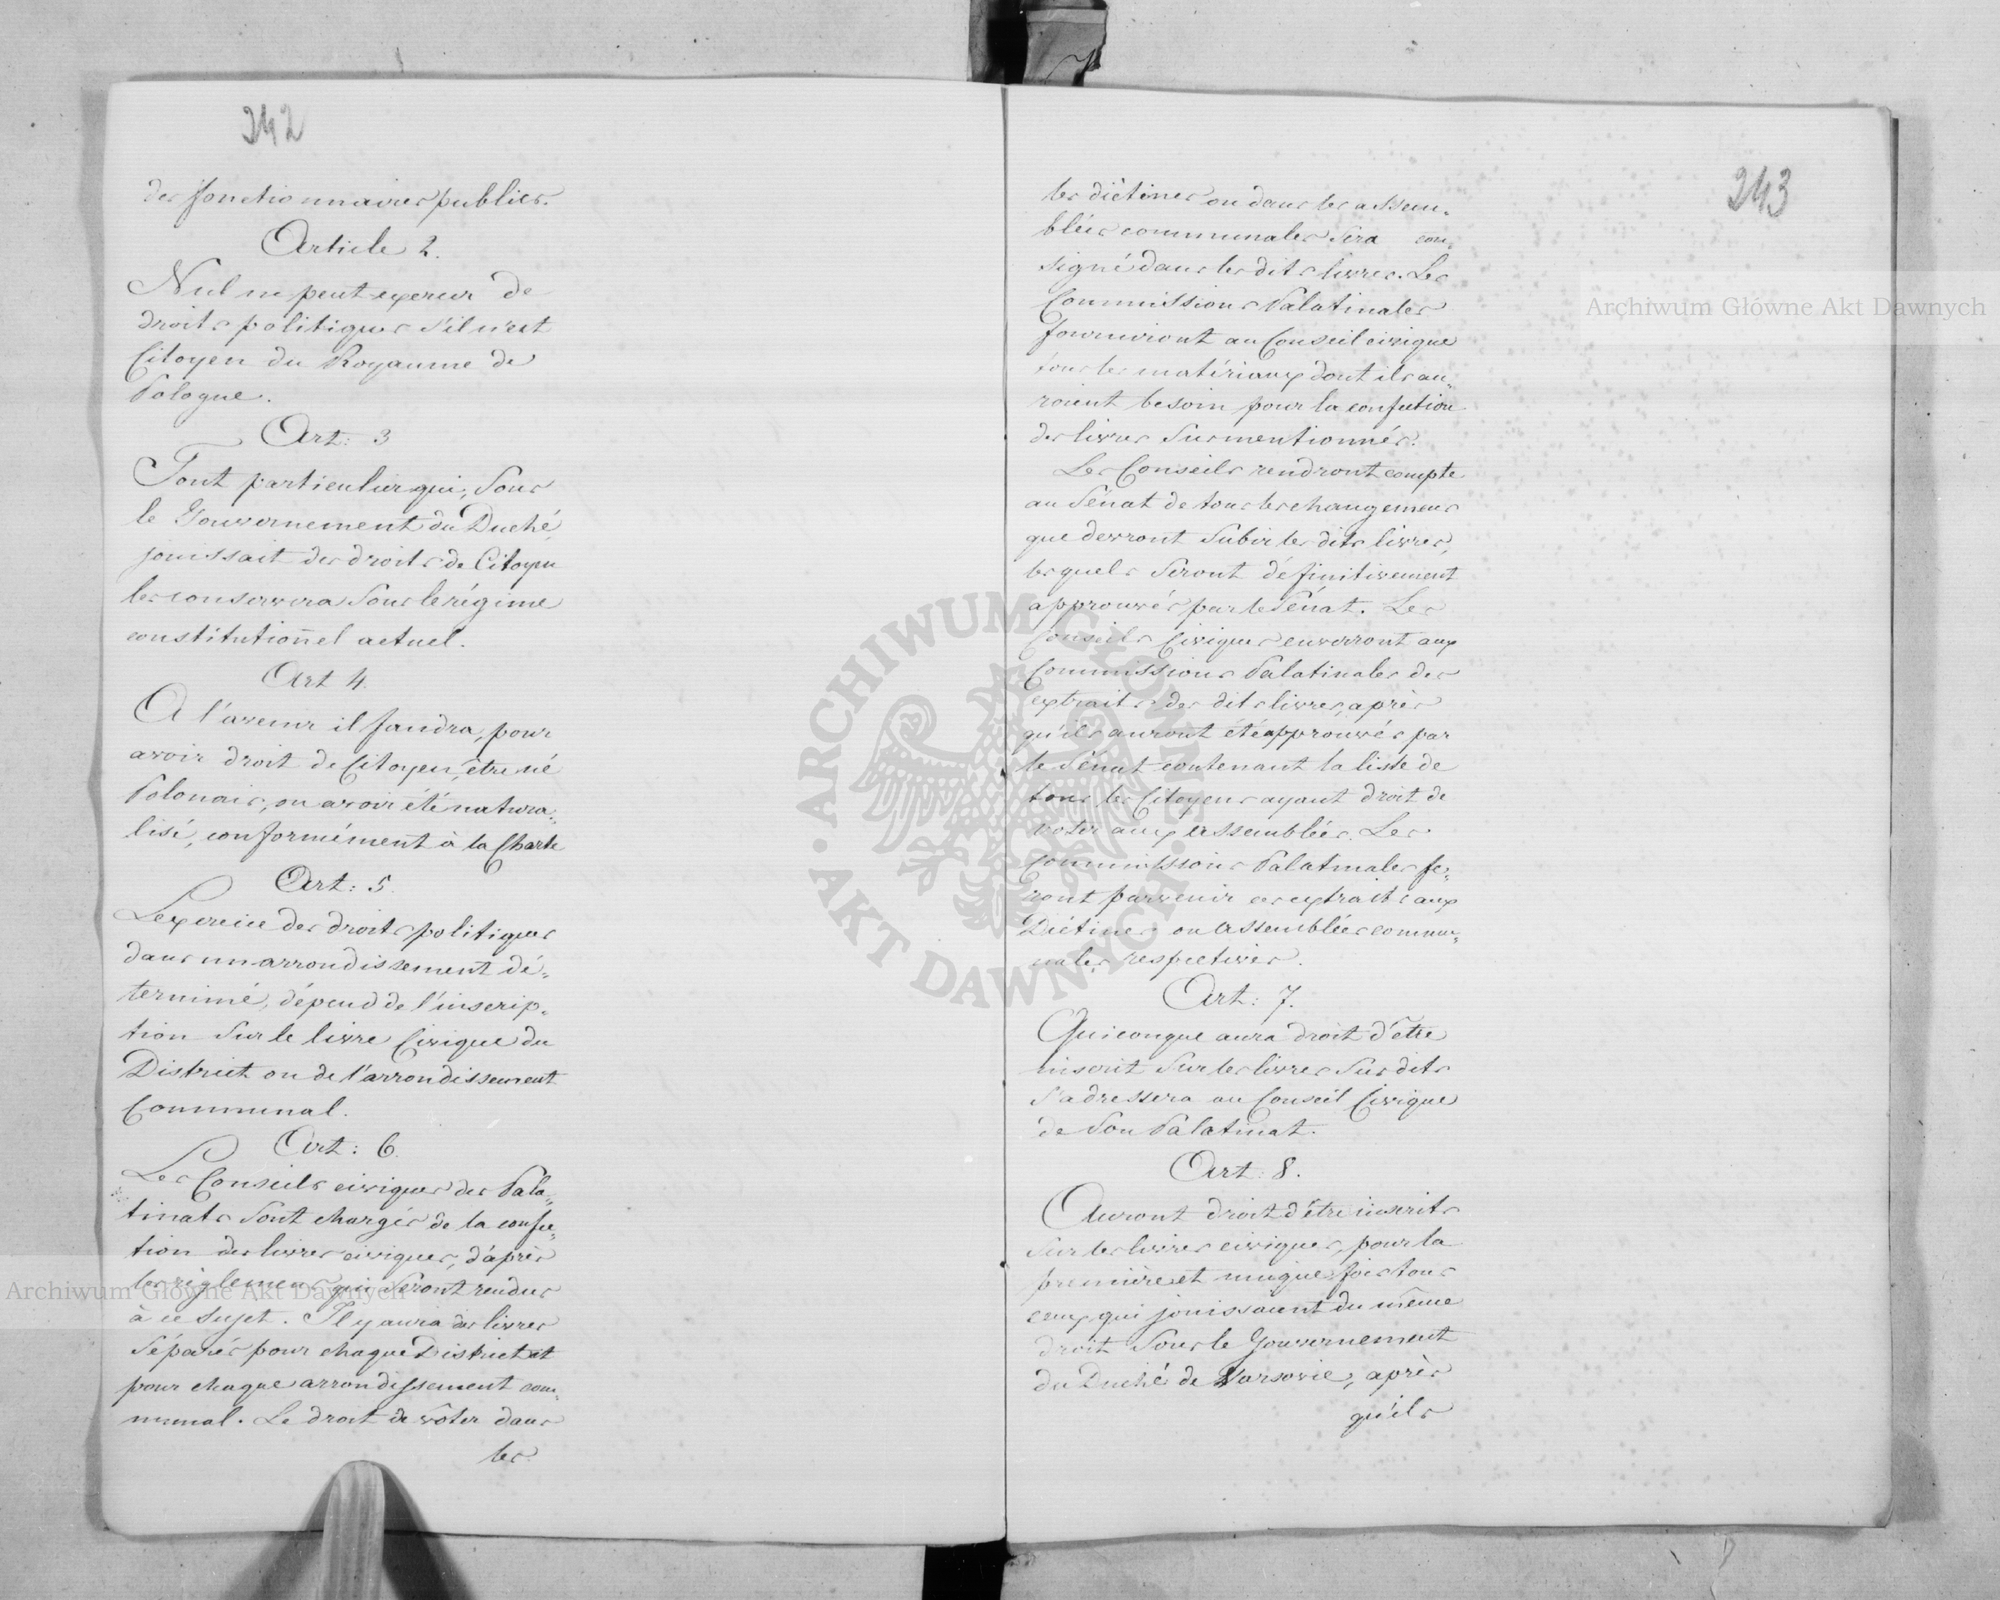 242
des fonctionnaires publics.
Article 2.
Nul ne peut exercer de
droits politiques s'il n'est
Citoyen du Royaume de
Pologne.
Art: 3
Tout particulier qui, sous
le Gouvernement du Duché,
jouissait des droits de Citoyen
les conservera sous le régime
constitutionnel actuel.
Art 4.
A l'avenir il faudra, pour
avoir droit de Citoyen, être né
Polonais, ou avoir été natura-
lisé, conformément à la Charte
Art: 5.
L'exercice des droits politiques
dans un arrondissement dé-
terminé, dépend de l'inscrip-
tion sur le livre Civique du
District ou de l'arrondissement
Communal.
Art: 6.
Les Conseils civiques des Pala-
tinats sont chargés de la confec-
tion des livres civiques, d'après
les règlemens qui seront rendus
à ce sujet. Il y aura des livres
séparés pour chaque District et
pour chaque arrondissement com-
munal. Le droit de voter dans
les
243
les diétines ou dans les assem-
blées communales sera con-
signé dans les dits livres. Les
Commissions Palatinales
fourniront au Conseil civique
tous les matériaux dont ils au-
roient besoin pour la confection
des livres susmentionnés.
Les Conseils rendront compte
au Sénat de tous les changemens
que devront subir les dits livres,
lesquels seront définitivement
approuvés par le Sénat. Les
Conseils Civiques enverront aux
Commissions Palatinales des
extraits des dits livres, après
qu'ils auront été approuvés par
le Sénat contenant la liste de
tous les Citoyens ayant droit de
voter aux assemblées. Les
Commissions Palatinales fe-
ront parvenir ces extraits aux
Diétines ou Assemblées commu-
nales respectives.
Art: 7.
Quiconque aura droit d'être
inscrit sur les livres susdits
s'adressera au Conseil Civique
de son Palatinat.
Art: 8.
Auront droit d'être inscrits
sur les livres civiques, pour la
première et unique fois tous
ceux qui jouissaient du même
droit sous le Gouvernement
du Duché de Varsovie, après
qu'ils
Archiwum Główne Akt Dawnych
Archiwum Główne Akt Dawnych
ARCHIWUM GŁÓWNE · AKT DAWNYCH ·